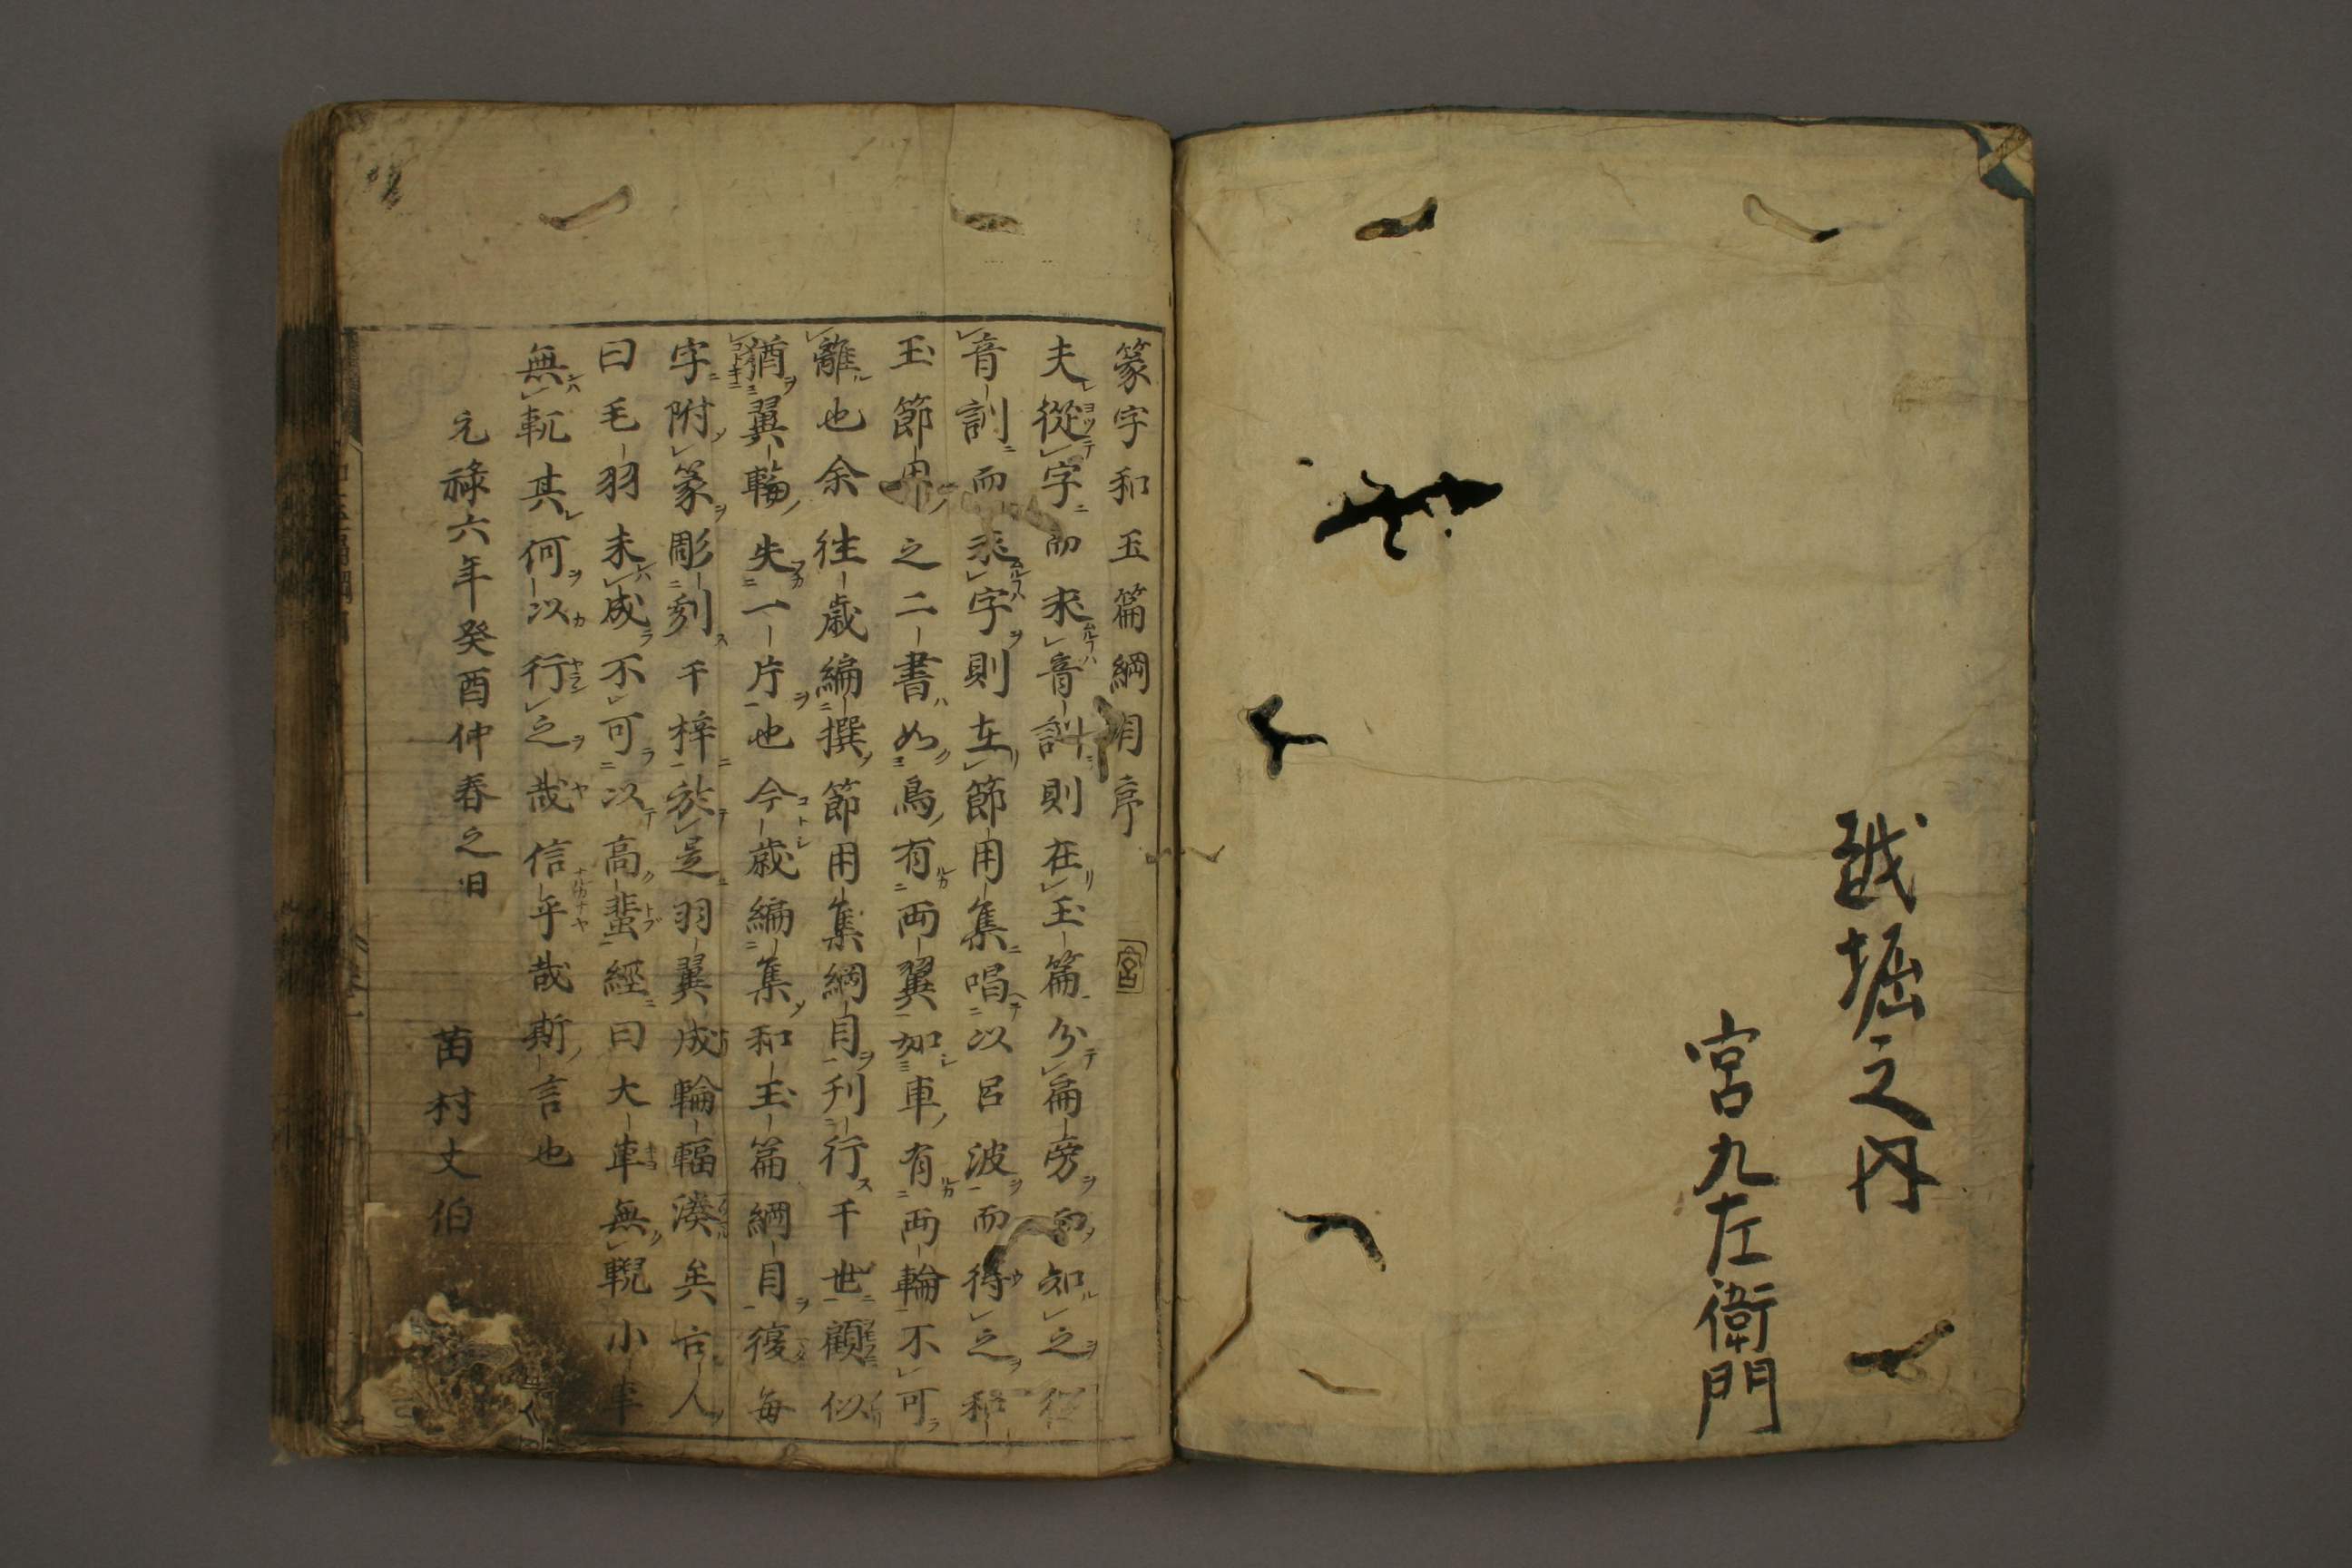 越堀之内
宮九左衛門
篆字和玉篇綱目序
夫從字而求音訓則在玉篇分扁旁而知之從
音訓而求字則在節用集唱以呂波而得之和
玉節用之二書如鳥有兩翼如車有兩輪不可
離也余往歳編撰節用集綱目刊行千世顧似
猶翼輪失一片也今歳編集和玉篇綱目復每
字附篆彫刻千梓於是羽翼成輪輻湊矣古人
曰毛羽未成不可以高蜚經曰大車無輗小車
無軏其何以行之哉信乎哉斯言也
元祿六年癸酉仲春之日
苗村丈伯